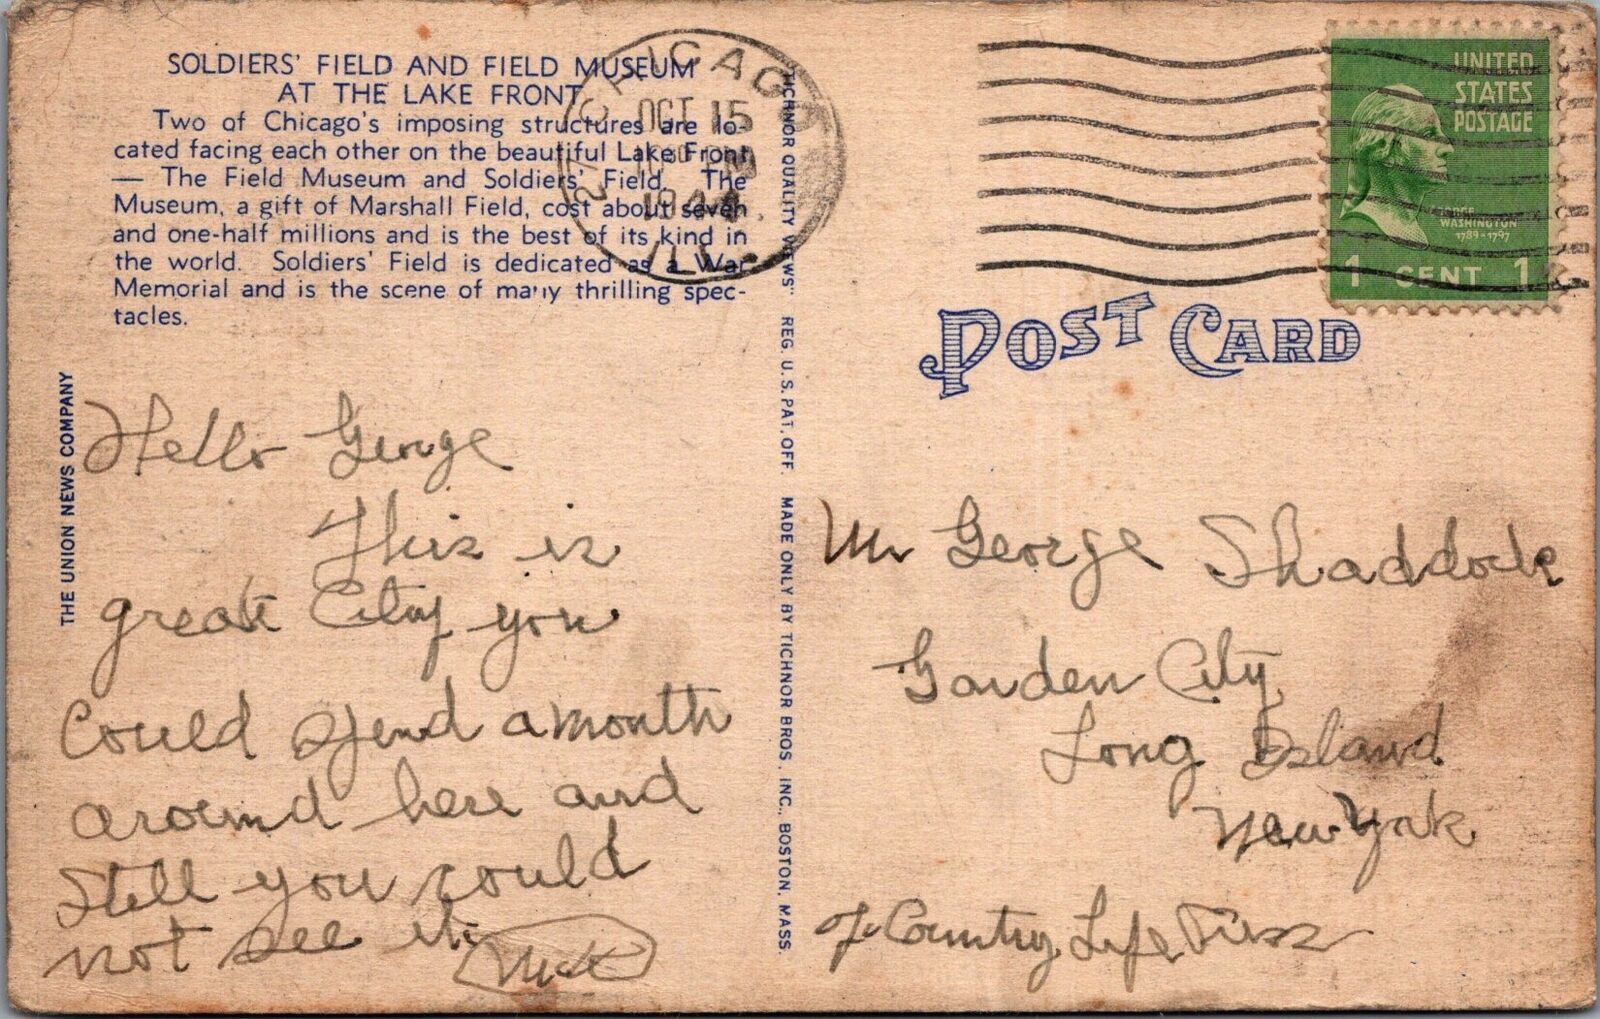 SOLDIERS' FIELD AND FIELD MUSEUM
AT THE LAKE FRONT
Two of Chicago's imposing structures are lo-
cated facing each other on the beautiful Lake Front
— The Field Museum and Soldiers' Field. The
Museum, a gift of Marshall Field, cost about seven
and one-half millions and is the best of its kind in
the world. Soldiers' Field is dedicated as a War
Memorial and is the scene of many thrilling spec-
tacles.
CHICAGO
OCT 15
1944
ILL.
UNITED
STATES
POSTAGE
GEORGE
WASHINGTON
1789-1797
1 CENT 1
POST CARD
THE UNION NEWS COMPANY
"TICHNOR QUALITY VIEWS" REG. U.S. PAT. OFF. MADE ONLY BY TICHNOR BROS., INC., BOSTON, MASS.
Hello George
This is
great City you
Could spend a month
around here and
Still you could
not see it.
Mr George Shaddock
Garden City
Long Island
New York
Country Life Press